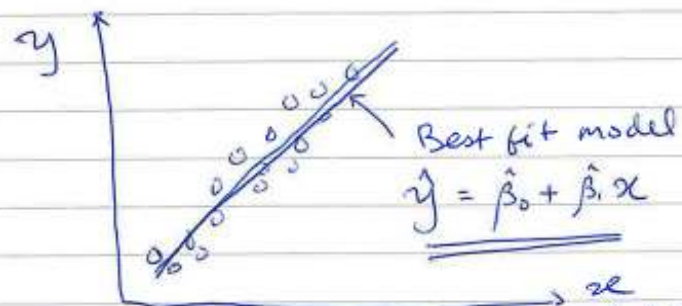 y
Best fit model
ŷ = β̂₀ + β̂₁ x
x